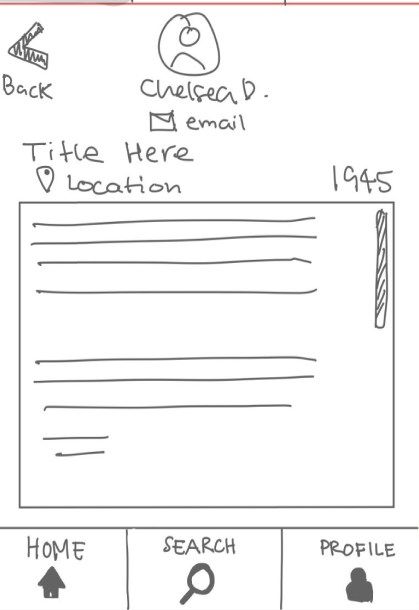 Back
Chelsea D.
email
Title Here
Location
1945
HOME
SEARCH
PROFILE